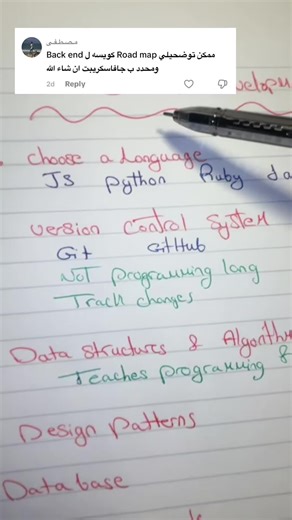 مصطفى
ممكن توضحيلي Road map كويسه ل Back end
ومحدد ب جافاسكريبت ان شاء الله
2d Reply
Choose a Language
JS Python Ruby
Version Control System
Git GitHub
Not programming lang
Track changes
Data Structures &
Teaches programming &
Design Patterns
Database